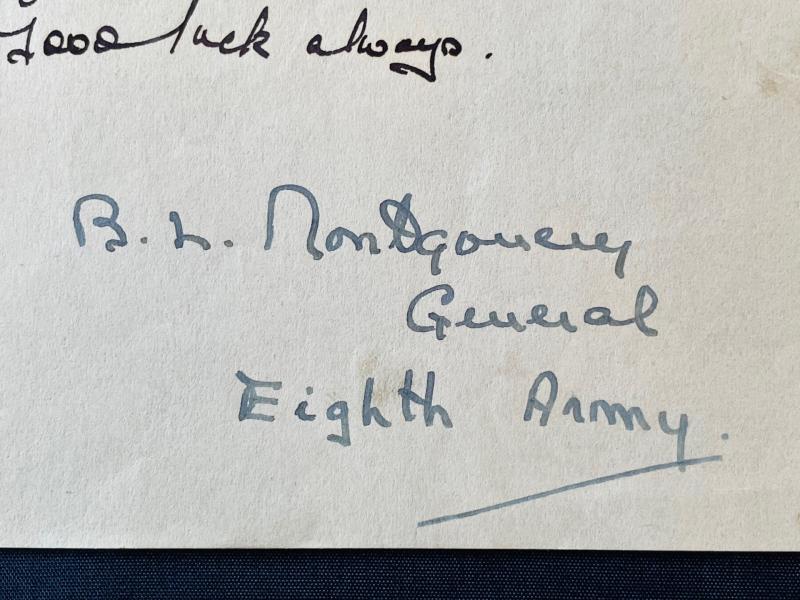 Good luck always.
B. L. Montgomery
General
Eighth Army.